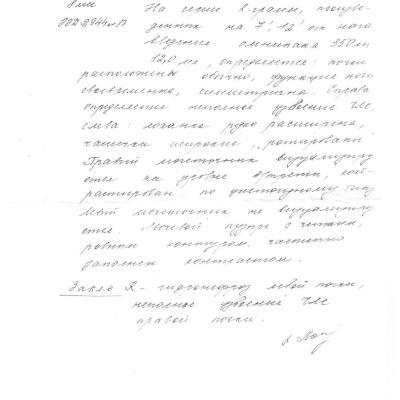 На серии R-грамм, произве-
дённых на 7', 12' от нача
введения омнипака 350 мл
12,0 мл, определяется: почки
расположены обычно, функция поч
своевременна, симметрична. Справа
определяется неполное удвоение ЧЛС
слева: лоханка резко расширена,
чашечки широкие, ротированы.
Правый мочеточник визуализиру
ется на уровне в/трети, конт
растирован по цистоидному тип
Левый мочеточник не визуализиру
ется. Мочевой пузырь с чётким,
ровным контуром, частично
заполнен контрастом.
Закл: R- гидронефроз левой почки,
неполное удвоение ЧЛС
правой почки.